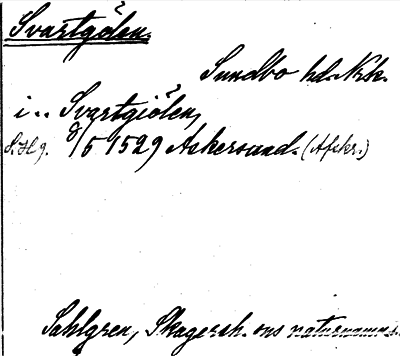 Svartgölen.
Sundbo hd. Nke.
i .. Svartgiölen,
S.H. 9. 8/5 1529 Ackersund. (Afskr.)
Sahlgren, Skagersh. ons naturnamn s.